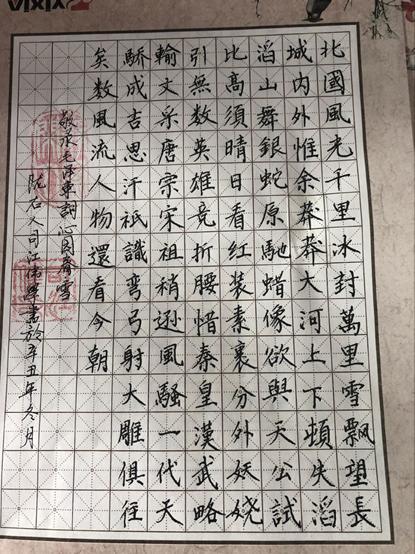 北國風光千里冰封萬里雪飄望長
城内外惟余莽莽大河上下頓失滔
滔山舞銀蛇原馳蜡像欲與天公試
比高須晴日看紅裝素裹分外妖娆
引無数英雄竞折腰惜秦皇漢武略
輸文采唐宗宋祖稍逊風騷一代天
驕成吉思汗祇識彎弓射大雕俱往
矣数風流人物還看今朝
敬录毛泽東詞沁园春雪
陇石人司江伟學書於辛丑年冬月